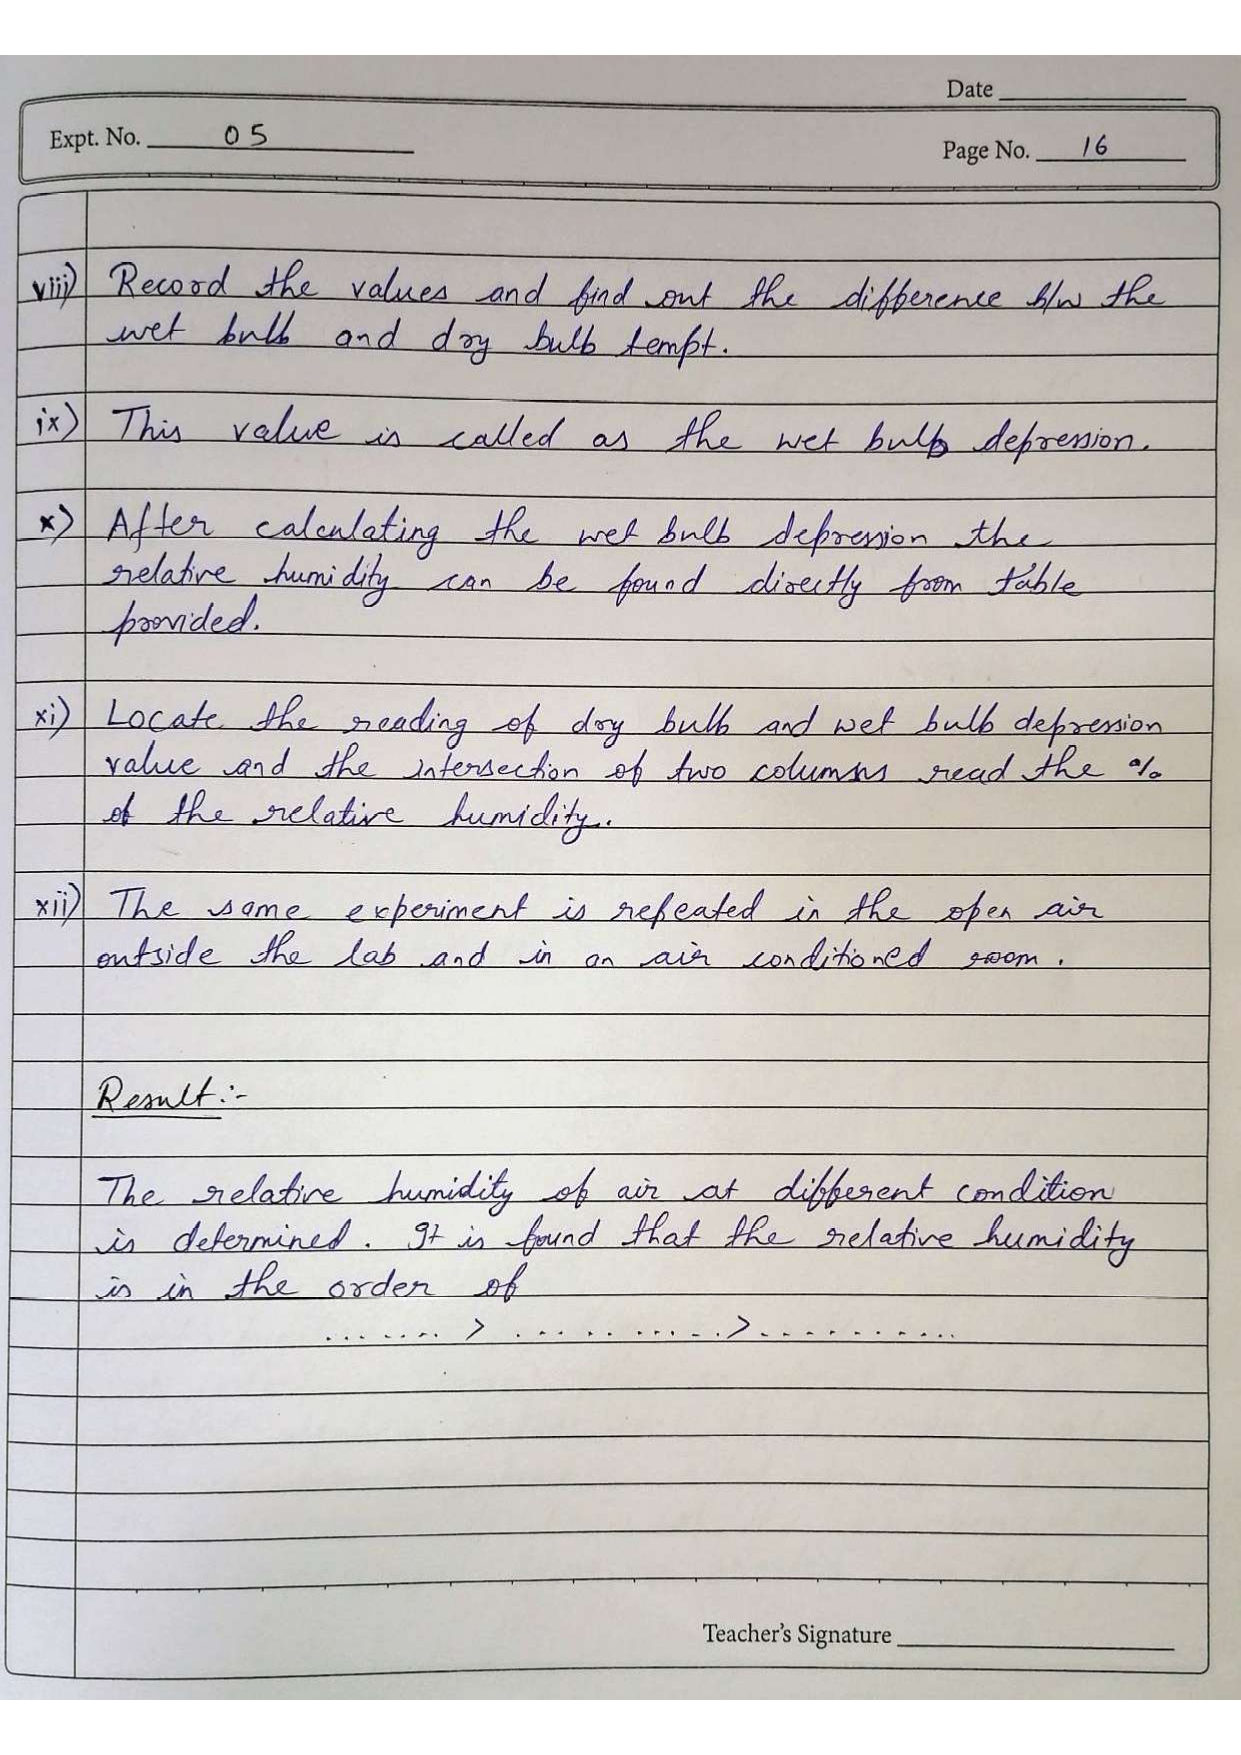 Date
Expt. No. 05
Page No. 16
viii) Record the values and find out the difference b/w the
wet bulb and dry bulb tempt.
ix) This value is called as the wet bulb depression.
x) After calculating the wet bulb depression the
relative humidity can be found directly from table
provided.
xi) Locate the reading of dry bulb and wet bulb depression
value and the intersection of two columns read the %
of the relative humidity.
xii) The same experiment is repeated in the open air
outside the lab and in an air conditioned room.
Result:-
The relative humidity of air at different condition
is determined. It is found that the relative humidity
is in the order of
........ > ............. > ............
Teacher's Signature